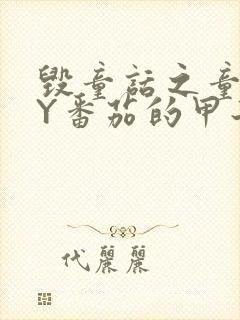 毁童话之童
Y番茄的甲
代麗麗